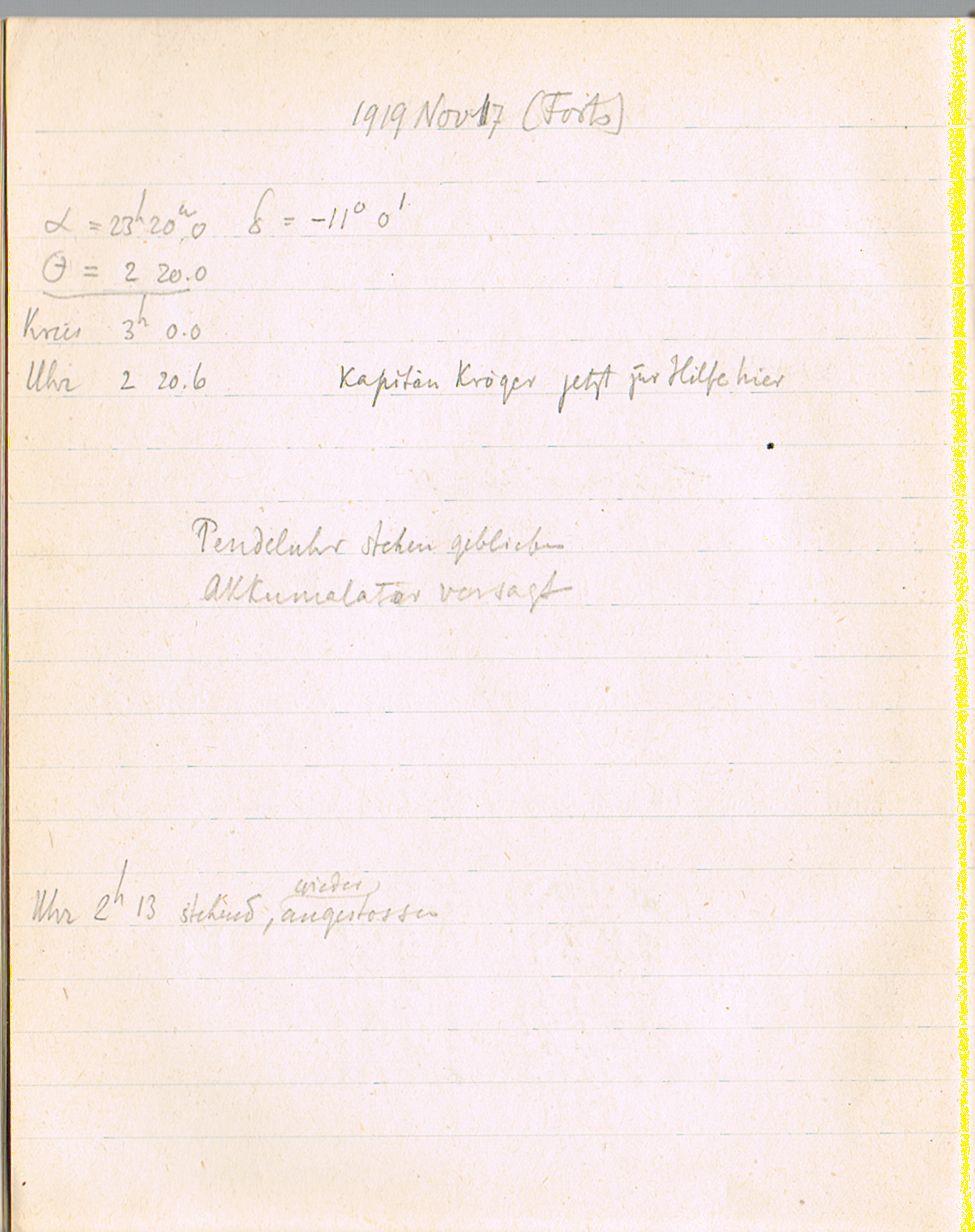 1919 Nov 17 (Forts)
α = 23ʰ 20ᵐ.0 δ = -11° 0'
Θ = 2 20.0
Kreis 3ʰ 0.0
Uhr 2 20.6 Kapitän Kröger jetzt zur Hilfe hier
Pendeluhr stehen geblieben
Akkumulator versagt
wieder
Uhr 2ʰ 13 stehend, angestossen